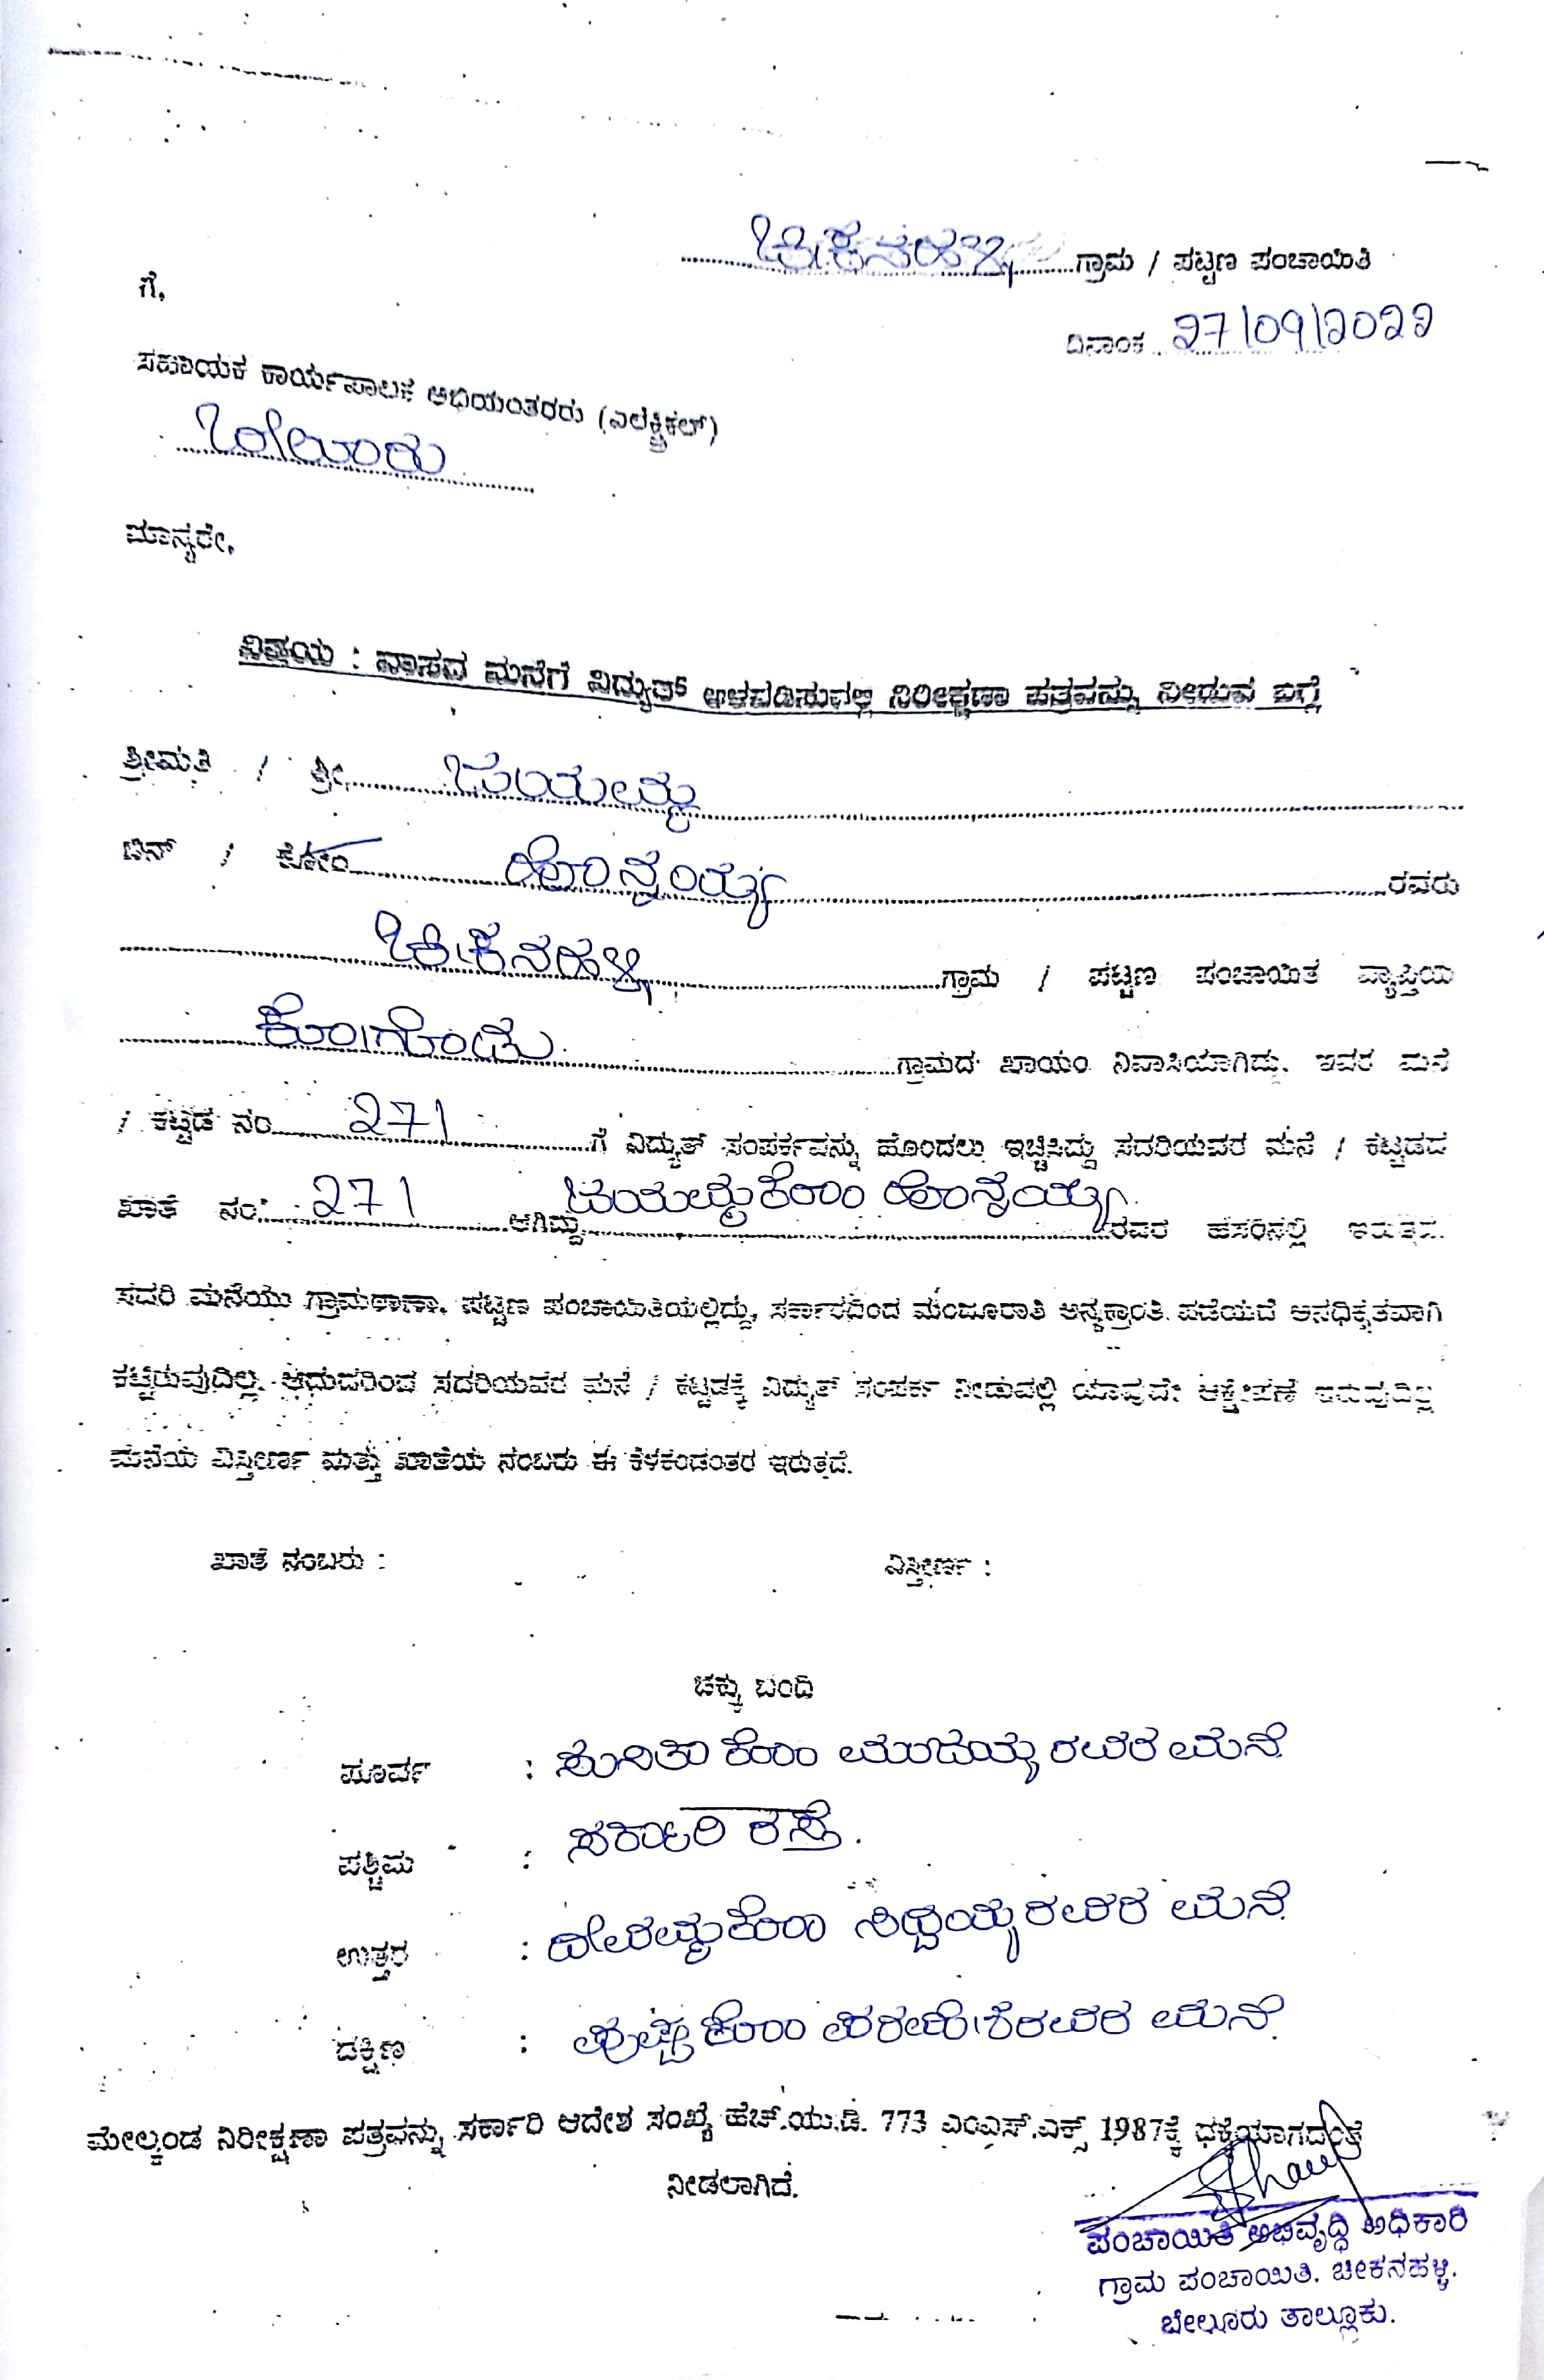 ಚೀಕನಹಳ್ಳಿ ಗ್ರಾಮ / ಪಟ್ಟಣ ಪಂಚಾಯಿತಿ
ಗೆ,
ದಿನಾಂಕ 27/09/2022
ಸಹಾಯಕ ಕಾರ್ಯಪಾಲಕ ಅಭಿಯಂತರರು (ಎಲೆಕ್ಟ್ರಿಕಲ್)
ಬೇಲೂರು
ಮಾನ್ಯರೇ,
ವಿಷಯ : ವಾಸದ ಮನೆಗೆ ವಿದ್ಯುತ್ ಅಳವಡಿಸುವಲ್ಲಿ ನಿರೀಕ್ಷಣಾ ಪತ್ರವನ್ನು ನೀಡುವ ಬಗ್ಗೆ
ಶ್ರೀಮತಿ / ಶ್ರೀ
ಬಿನ್ / ಕೋಂ ಹೊನ್ನಯ್ಯ ರವರು
ಚೀಕನಹಳ್ಳಿ ಗ್ರಾಮ / ಪಟ್ಟಣ ಪಂಚಾಯಿತ ವ್ಯಾಪ್ತಿಯ
ಕೋಗೋಡು ಗ್ರಾಮದ ಖಾಯಂ ನಿವಾಸಿಯಾಗಿದ್ದು, ಇವರ ಮನೆ
/ ಕಟ್ಟಡ ನಂ 271 ಗೆ ವಿದ್ಯುತ್ ಸಂಪರ್ಕವನ್ನು ಹೊಂದಲು ಇಚ್ಚಿಸಿದ್ದು ಸದರಿಯವರ ಮನೆ / ಕಟ್ಟಡದ
ಖಾತೆ ನಂ: 271 ಆಗಿದ್ದು ಕೋಂ ಹೊನ್ನಯ್ಯ ರವರ ಹೆಸರಿನಲ್ಲಿ ಇರುತ್ತದೆ.
ಸದರಿ ಮನೆಯು ಗ್ರಾಮಠಾಣಾ, ಪಟ್ಟಣ ಪಂಚಾಯಿತಿಯಲ್ಲಿದ್ದು, ಸರ್ಕಾರದಿಂದ ಮಂಜೂರಾತಿ ಅನ್ಯಕ್ರಾಂತಿ ಪಡೆಯದೆ ಅನಧಿಕೃತವಾಗಿ
ಕಟ್ಟಿರುವುದಿಲ್ಲ. ಆದುದರಿಂದ ಸದರಿಯವರ ಮನೆ / ಕಟ್ಟಡಕ್ಕೆ ವಿದ್ಯುತ್ ಸಂಪರ್ಕ ನೀಡುವಲ್ಲಿ ಯಾವುದೇ ಆಕ್ಷೇಪಣೆ ಇರುವುದಿಲ್ಲ
ಮನೆಯ ವಿಸ್ತೀರ್ಣ ಮತ್ತು ಖಾತೆಯ ನಂಬರು ಈ ಕೆಳಕಂಡಂತರ ಇರುತ್ತದೆ.
ಖಾತೆ ನಂಬರು : ವಿಸ್ತೀರ್ಣ :
ಚಕ್ಕು ಬಂದಿ
ಪೂರ್ವ : ಸುನಿತಾ ಕೋಂ ಮುದಯ್ಯ ರವರ ಮನೆ
ಪಶ್ಚಿಮ : ಸರ್ಕಾರಿ ರಸ್ತೆ.
ಉತ್ತರ : ದೇವಮ್ಮ ಕೋಂ ರವರ ಮನೆ
ದಕ್ಷಿಣ : ಪುಷ್ಪ ಕೋಂ ಪರಮೇಶ ರವರ ಮನೆ
ಮೇಲ್ಕಂಡ ನಿರೀಕ್ಷಣಾ ಪತ್ರವನ್ನು ಸರ್ಕಾರಿ ಆದೇಶ ಸಂಖ್ಯೆ ಹೆಚ್.ಯು.ಡಿ. 773 ಎಂಎಸ್.ಎಕ್ಸ್ 1987ಕ್ಕೆ ಧಕ್ಕೆಯಾಗದಂತೆ
ನೀಡಲಾಗಿದೆ.
ಪಂಚಾಯಿತಿ ಅಭಿವೃದ್ಧಿ ಅಧಿಕಾರಿ
ಗ್ರಾಮ ಪಂಚಾಯಿತಿ. ಚೀಕನಹಳ್ಳಿ.
ಬೇಲೂರು ತಾಲ್ಲೂಕು.